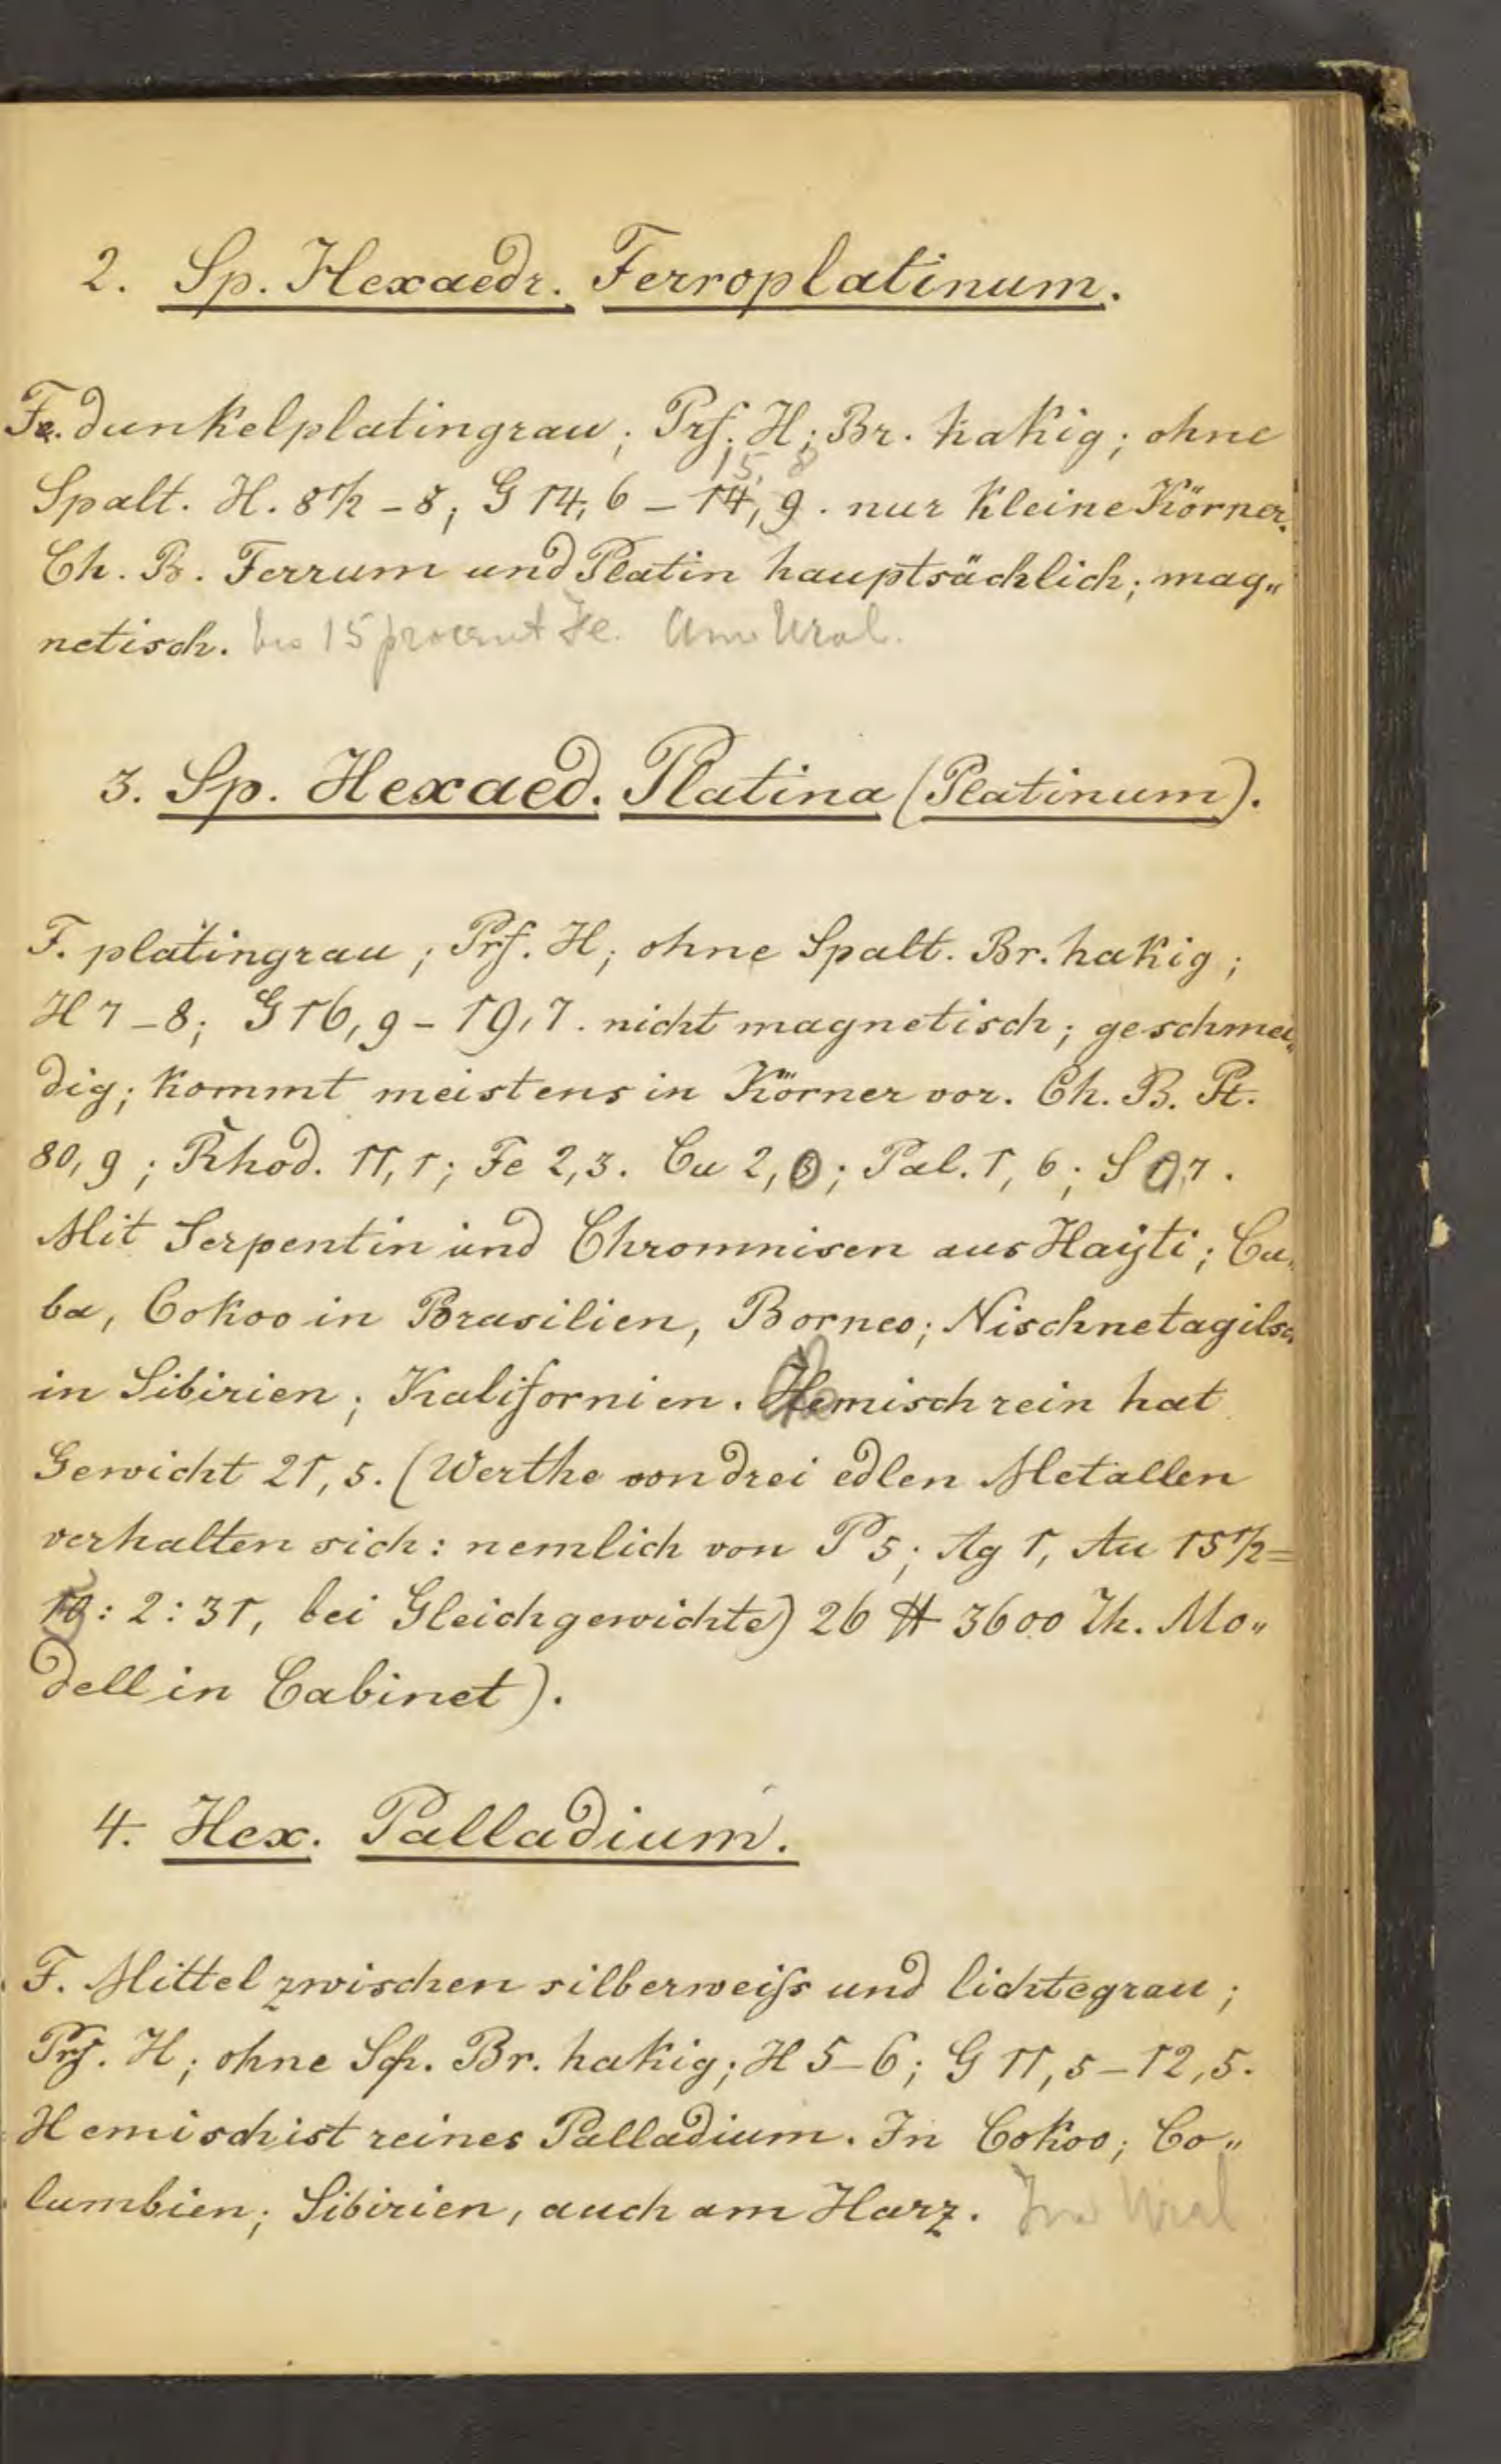 2. Sp. Hexaedr. Ferroplatinum.
Fe. dunkelplatingrau; Prf. H; Br. hakig; ohne
15, 8
Spalt. H. 8 1/2 - 8; G 14,6 - 14,9. nur kleine Körner.
Ch. B. Ferrum und Platin hauptsächlich; mag„
netisch. bis 15 procent Fe. Am Ural.
3. Sp. Hexaed. Platina (Platinum).
F. platingrau; Prf. H; ohne Spalt. Br. hakig;
H 7-8; G 16,9 - 19,7. nicht magnetisch; geschmei„
dig; kommt meistens in Körner vor. Ch. B. Pt.
80,9; Rhod. 11,1; Fe 2,3. Cu 2,; Pal. 1,6; S 0,7.
Mit Serpentin und Chromnisen aus Hayti; Cu„
ba, Cokoo in Brasilien, Borneo; Nischnetagilsc„
in Sibirien; Kalifornien. Hemisch rein hat
Gewicht 21,5. (Werthe von drei edlen Metallen
verhalten sich: nemlich von P 5; Ag 1, Au 15 1/2 =
10: 2: 31, bei Gleichgewichte) 26 ℔ 3600 Th. Mo„
dell in Cabinet).
4. Hex. Palladium.
F. Mittel zwischen silberweiſs und lichtegrau;
Prf. H; ohne Sp. Br. hakig; H 5-6; G 11,5 - 12,5.
Hemisch ist reines Palladium. In Cokoo; Co„
lumbien; Sibirien, auch am Harz. Im Ural